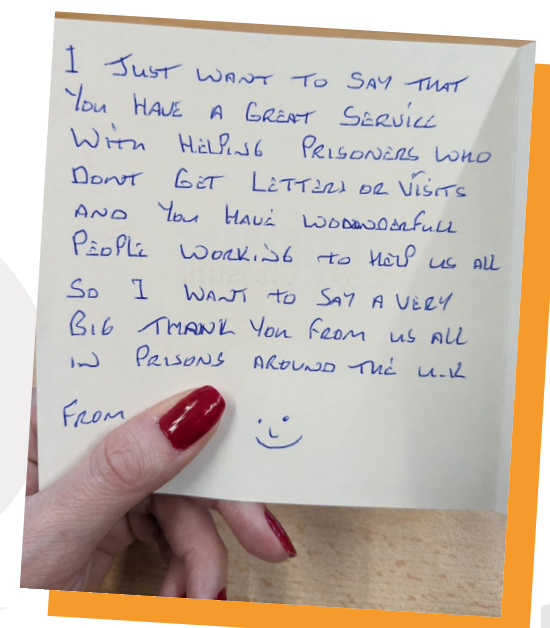 I JUST WANT TO SAY THAT
You HAVE A GREAT SERVICE
WITH HELPING PRISONERS WHO
DONT GET LETTERS OR VISITS
AND You HAVE WOOWNDERFULL
PEOPLE WORKING TO HELP US ALL
SO I WANT TO SAY A VERY
BIG THANK You FROM US ALL
IN PRISONS AROUND THE U.K
FROM